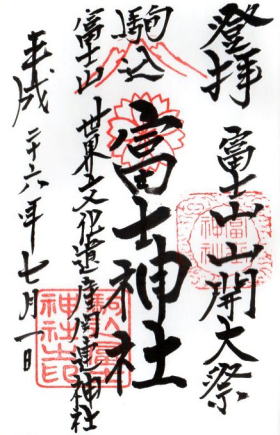 登拝
富士山山開大祭
駒込
富士神社
富士山
世界文化遺産関連神社
平成二十六年七月一日
駒込富士神社之印